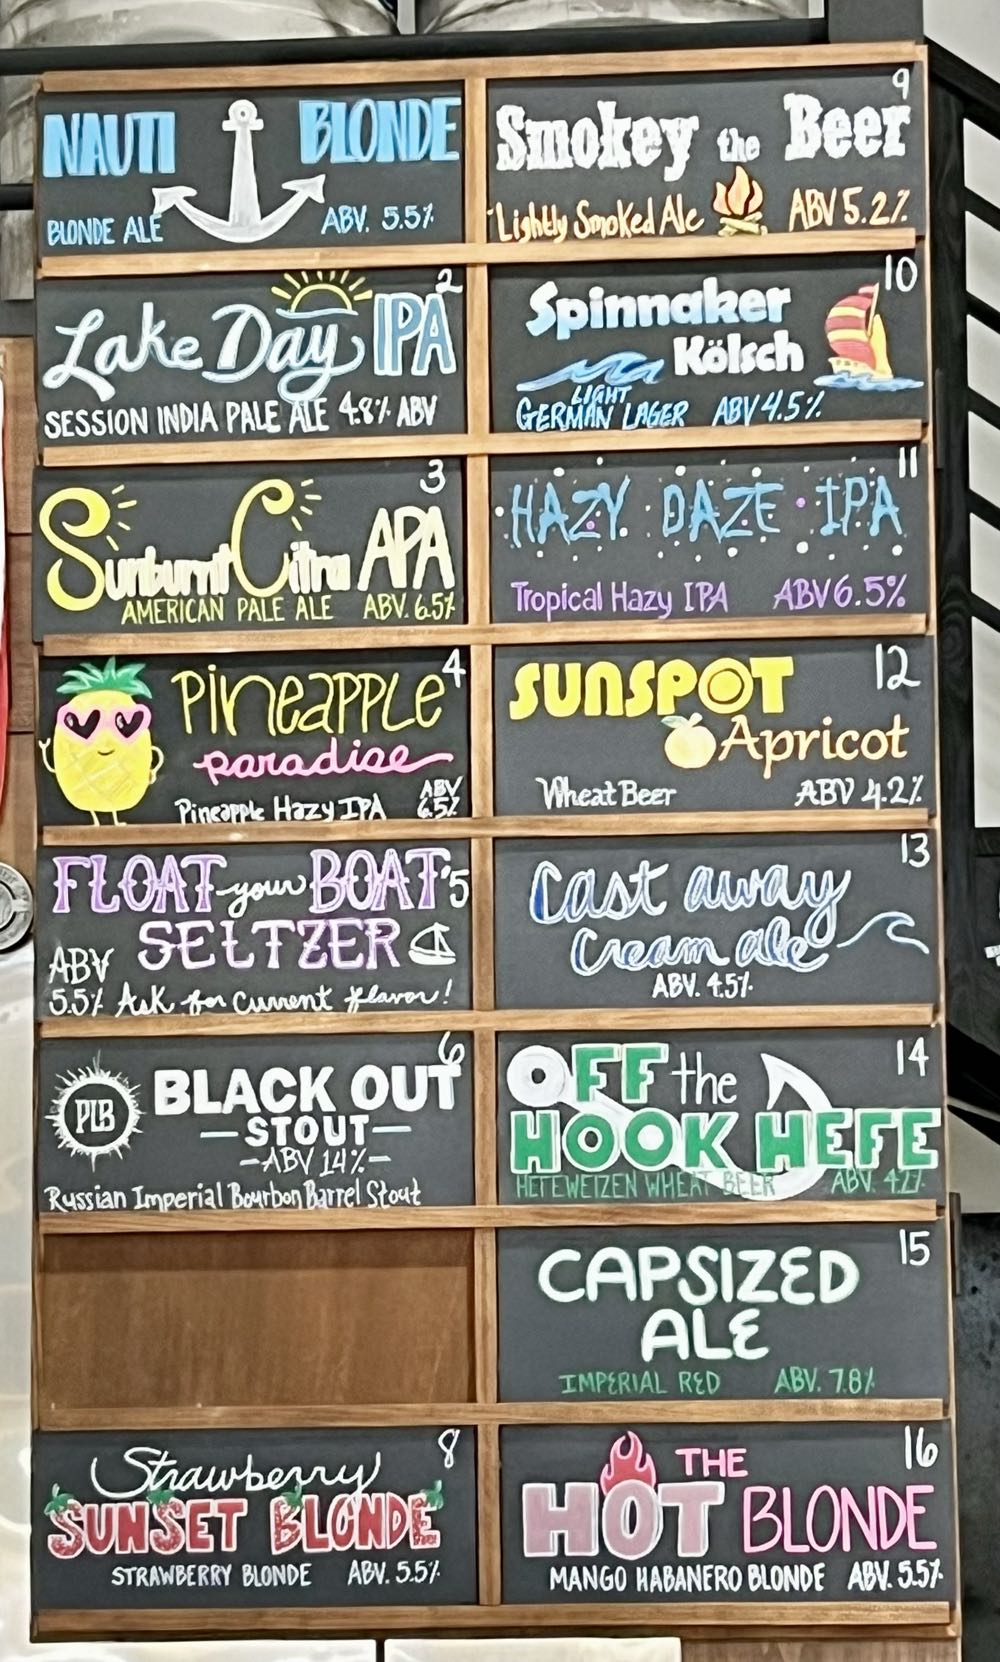 NAUTI BLONDE
BLONDE ALE ABV. 5.5%
2
Lake Day IPA
SESSION INDIA PALE ALE 4.8% ABV
3
Sunburnt Citra APA
AMERICAN PALE ALE ABV. 6.5%
4
Pineapple
paradise
Pineapple Hazy IPA ABV 6.5%
5
FLOAT your BOAT
SELTZER
ABV 5.5% Ask for current flavor!
6
PLB
BLACK OUT
-STOUT-
-ABV 14%-
Russian Imperial Bourbon Barrel Stout
8
Strawberry
SUNSET BLONDE
STRAWBERRY BLONDE ABV. 5.5%
9
Smokey the Beer
Lightly Smoked Ale ABV 5.2%
10
Spinnaker
Kölsch
LIGHT
GERMAN LAGER ABV 4.5%
11
HAZY DAZE IPA
Tropical Hazy IPA ABV 6.5%
12
SUNSPOT
Apricot
Wheat Beer ABV 4.2%
13
Cast away
Cream ale
ABV. 4.5%
14
OFF the
HOOK HEFE
HEFEWEIZEN WHEAT BEER ABV.
15
CAPSIZED
ALE
IMPERIAL RED ABV. 7.8%
16
THE
HOT BLONDE
MANGO HABANERO BLONDE ABV. 5.5%